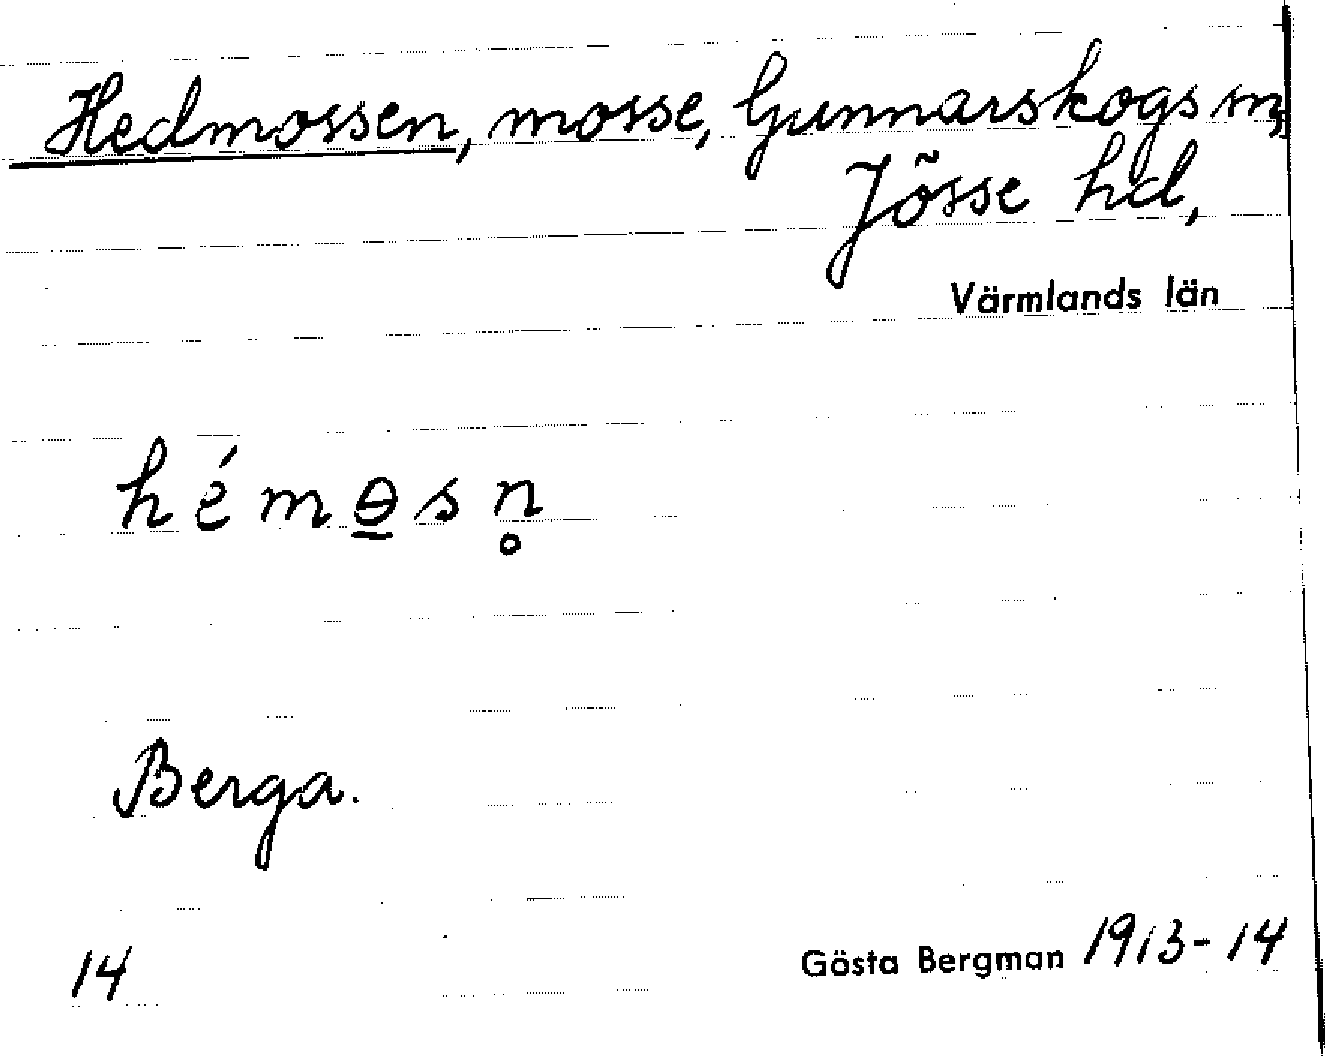 Hedmossen, mosse, Gunnarskogs sn,
Jösse hd,
Värmlands län
hémɵ̲sn̥
Berga.
14
Gösta Bergman 1913-14